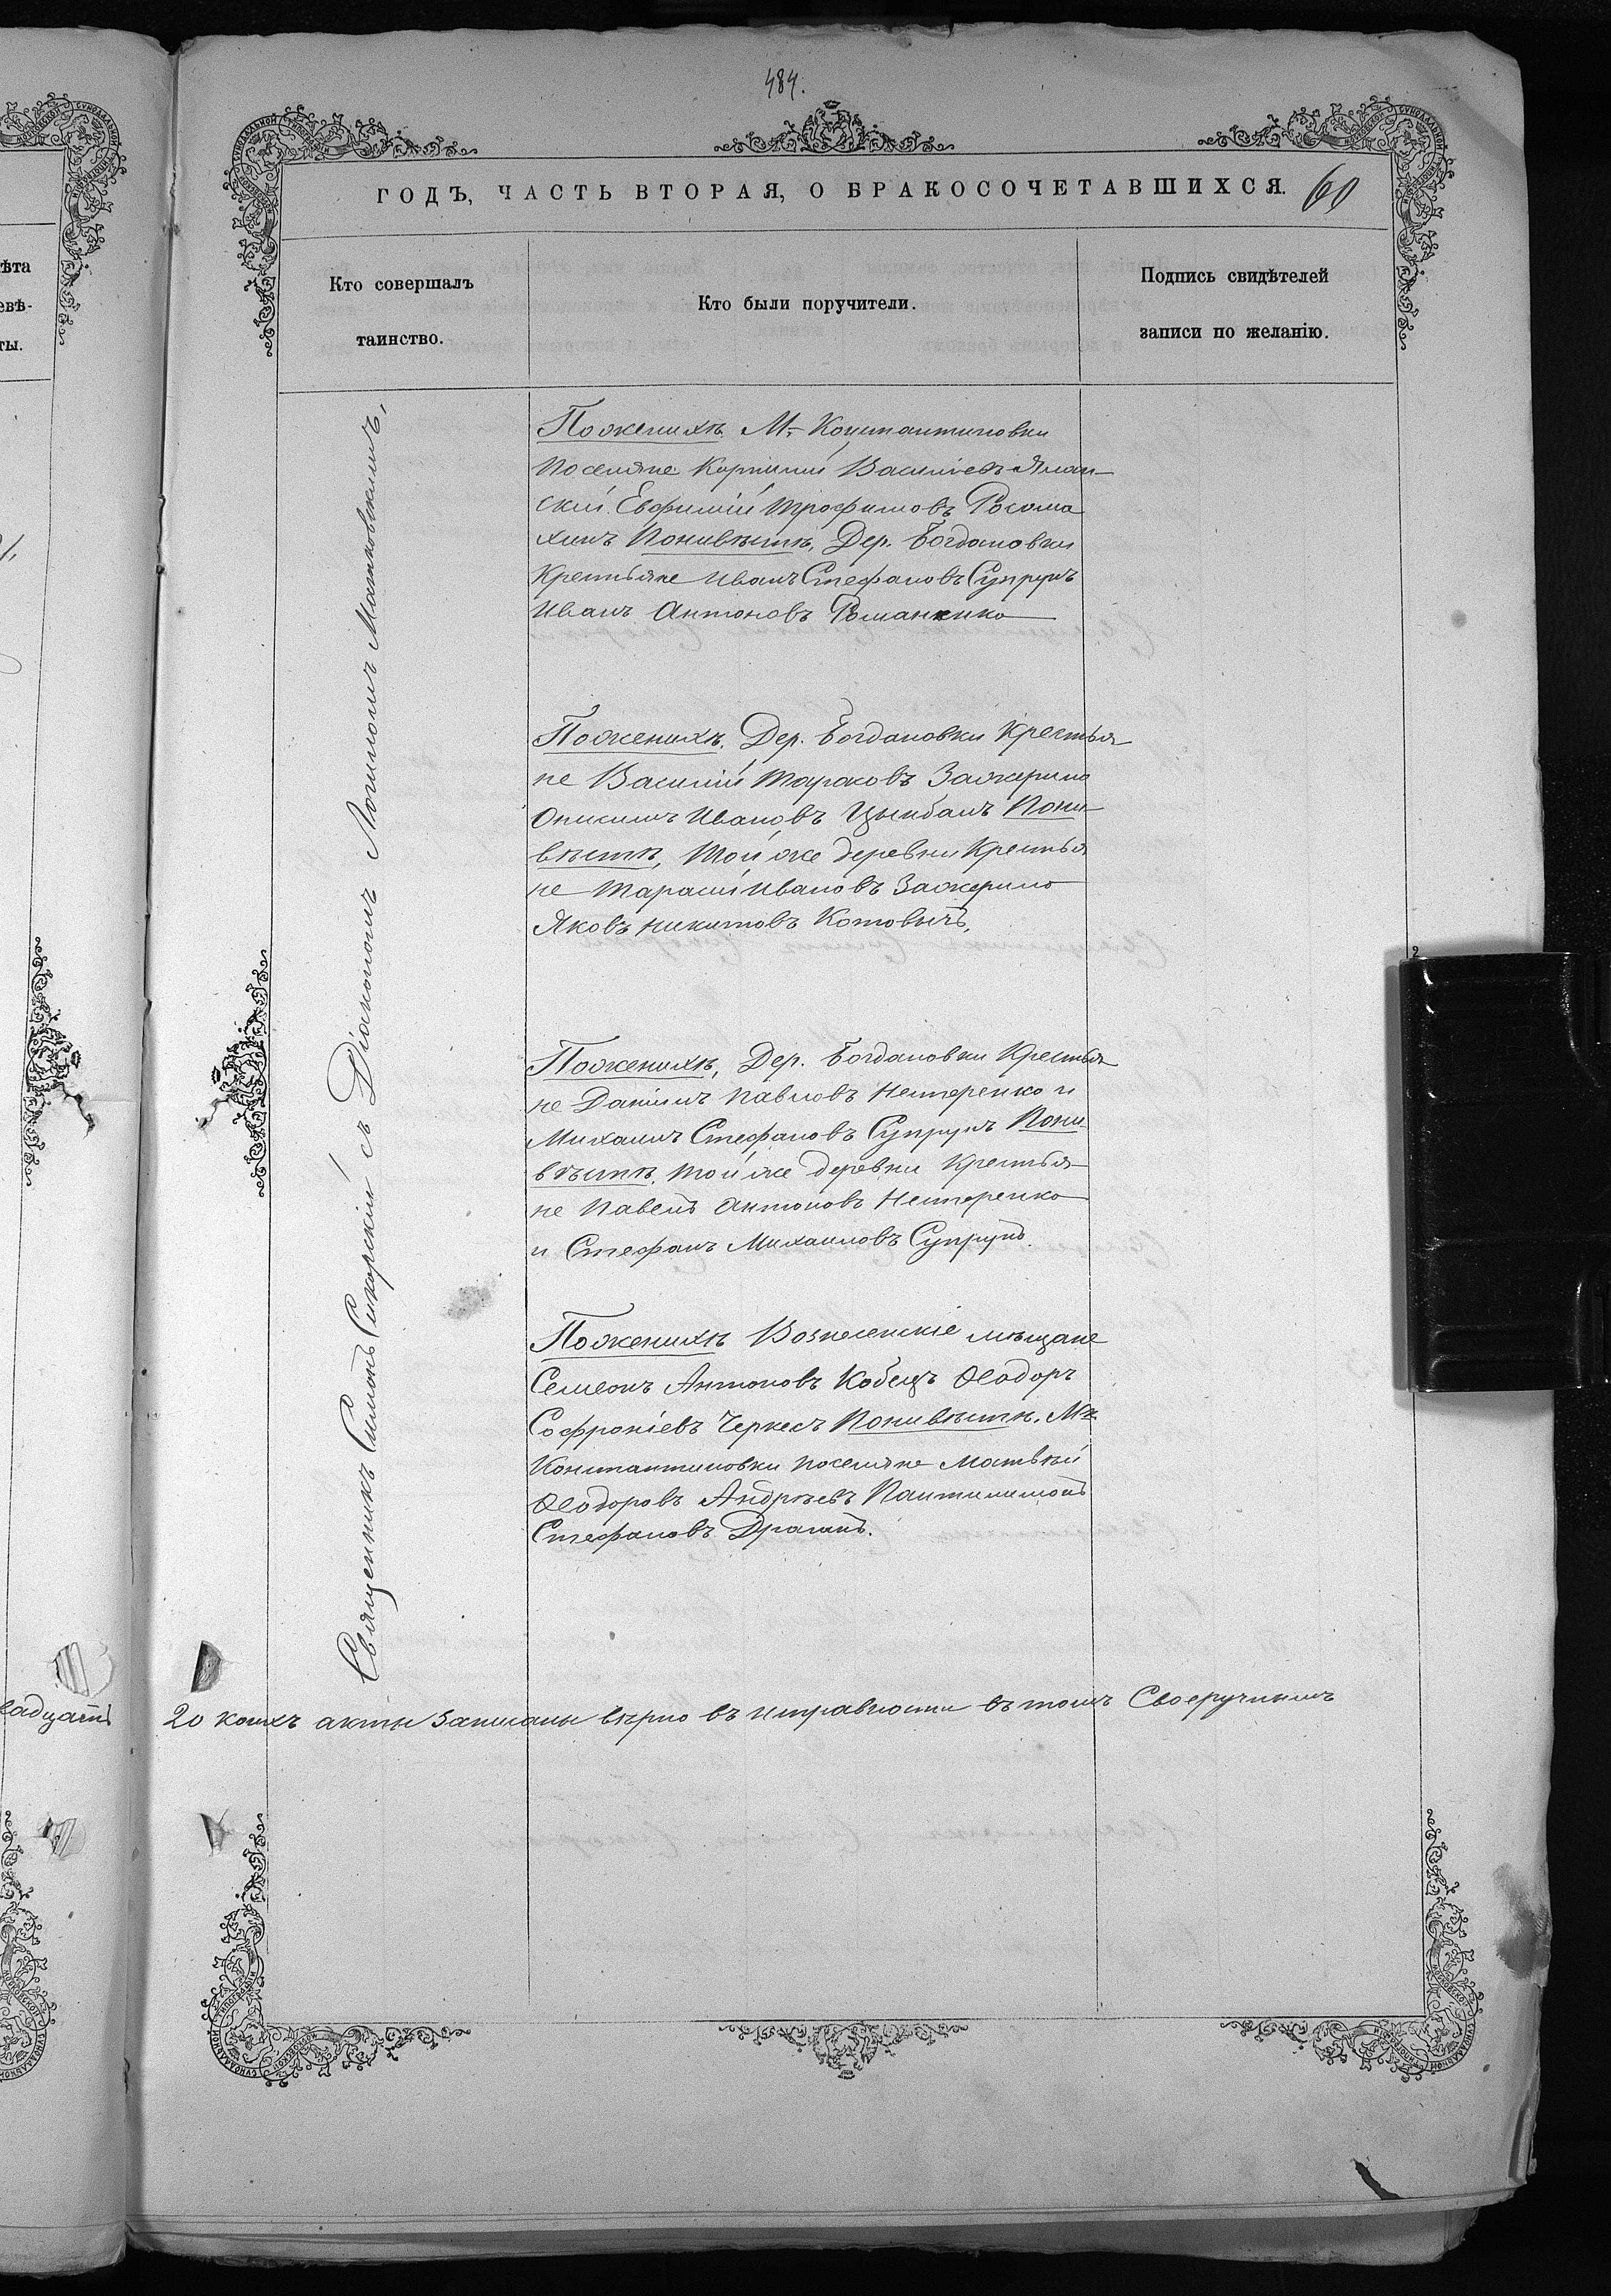 484.
ГОДЪ, ЧАСТЬ ВТОРАЯ, О БРАКОСОЧЕТАВШИХСЯ. 60
Кто совершалъ
таинство.
Кто были поручители.
Подпись свидѣтелей
записи по желанію.
Священникъ Симонъ Сикорскій съ Діакономъ Маньковскимъ,
Поженихѣ М. Константиновки
Поселяне Василіевъ
скій Евфимій Трофимовъ Росома
хинъ Поневѣстѣ, Дер. Богдановки
Крестьяне Иванъ Стефановъ Супрунъ
Иванъ Антоновъ Романенко
Поженихѣ, Дер. Богдановки Крестья
не Василій Тарасовъ
Онисимъ Ивановъ Цымбалъ Поне
вѣстѣ, Той же деревни Крестья
не Тарасій Ивановъ
Яковъ Никитовъ Котовычъ,
Поженихѣ, Дер. Богдановки Крестья
не Даніилъ Павловъ Нестеренко и
Михаилъ Стефановъ Супрунъ Поне
вѣстѣ, той же деревни Крестья
не Павелъ Антоновъ Нестеренко
и Стефанъ Михаиловъ Супрунъ.
Поженихѣ Вознесенскіе мѣщане
Семеонъ Антоновъ Кобецъ Ѳеодоръ
Софроніевъ Черкесъ Поневѣстѣ, М.
Константиновки поселяне Матвѣй
Ѳеодоровъ Андрѣевъ Пантелимонъ
Стефановъ Драганъ.
20 коихъ акты записаны вѣрно въ исправности въ томъ Своеручнымъ